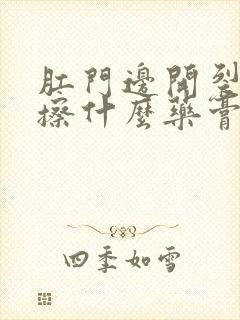 肛門邊開裂
擦什麼藥膏
四季如雪